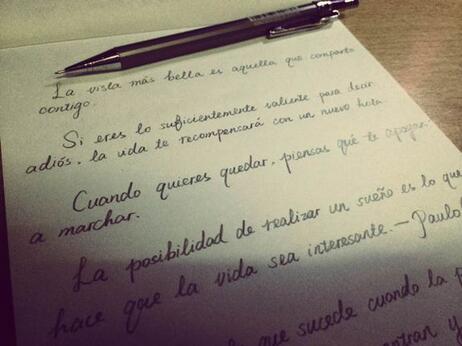 La vista más bella es aquella que comparto
contigo.
Si eres lo suficientemente valiente para decir
adiós, la vida te recompensará con un nuevo hola
Cuando quieres quedar, piensas qué te apagan
a marchar.
La posibilidad de realizar un sueño es lo que
hace que la vida sea interesante.—Paulo
que sucede cuando la
y